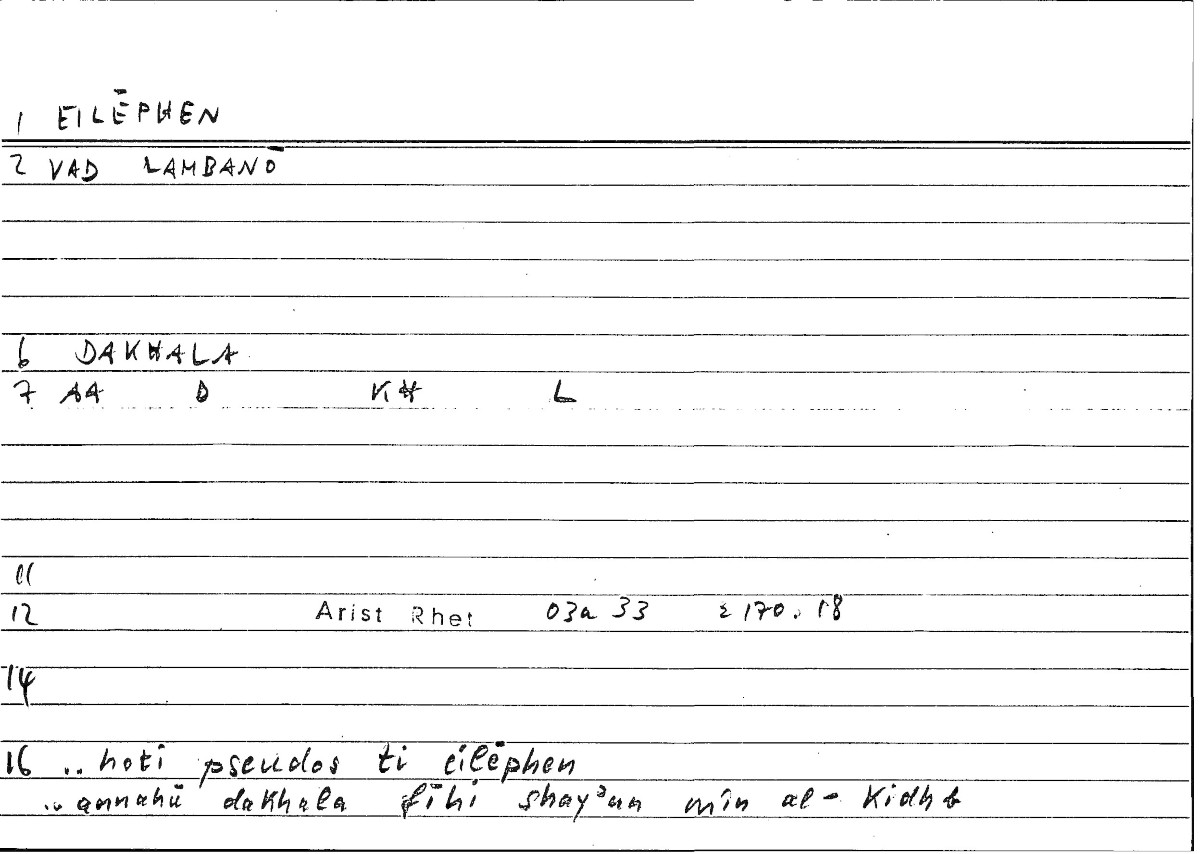 1 EILĒPHEN
2 VAD LAMBANŌ
6 DAKHALA
7 AA D KH L
11
12 Arist Rhet 03a 33 = 170.18
14
16 .. hoti pseudos ti eilēphen
.. annahū dakhala fīhi shayʾun min al-Kidhb